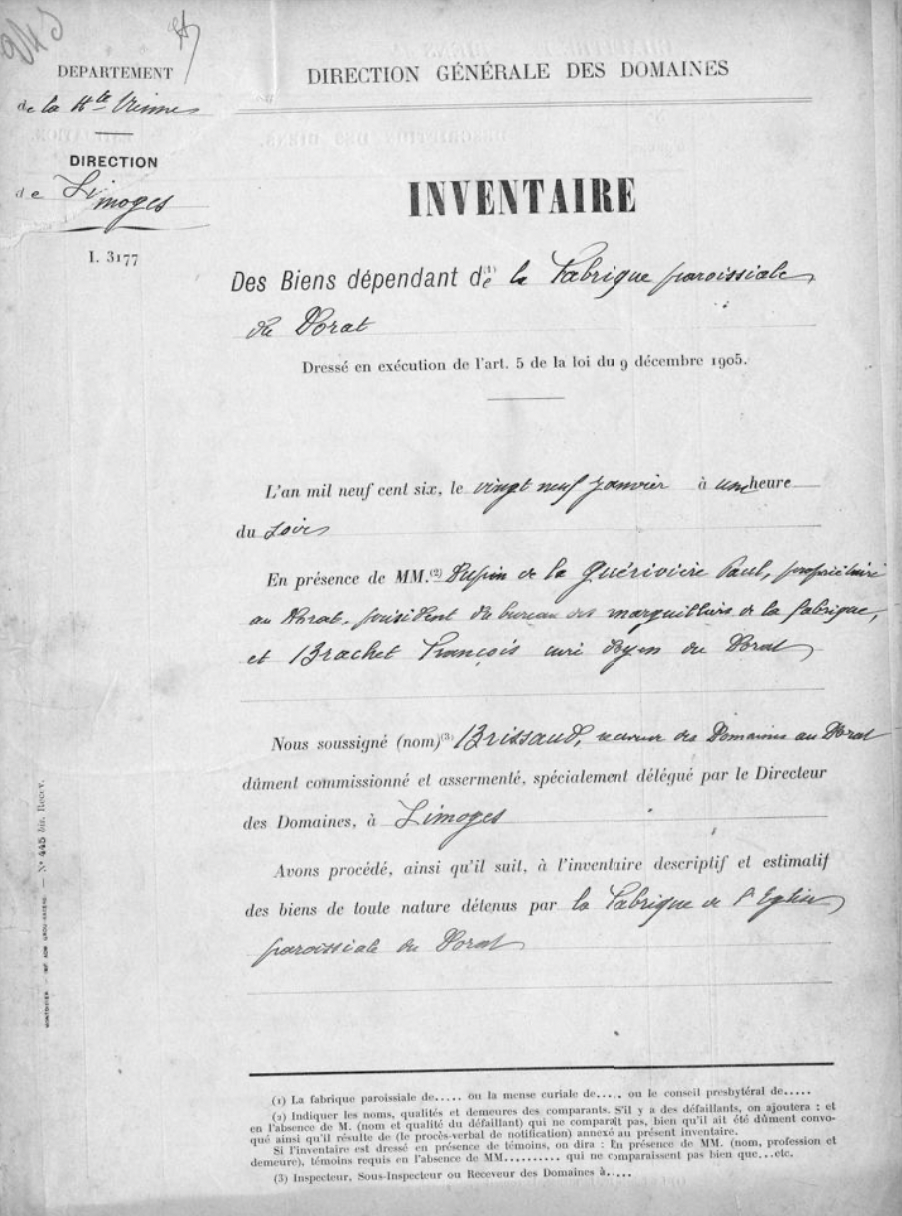 DEPARTEMENT
de la Hte Vienne
DIRECTION
de Limoges
I. 3177
DIRECTION GÉNÉRALE DES DOMAINES
INVENTAIRE
Des Biens dépendant de (1) la Fabrique paroissiale
du Dorat
Dressé en exécution de l'art. 5 de la loi du 9 décembre 1905.
L'an mil neuf cent six, le vingt neuf Janvier à une heure
du soir
En présence de MM.(2) Dupin de la Guérivière Paul, propriétaire
au Dorat, président du bureau des marguilliers de la fabrique,
et Brachet François curé doyen du Dorat
Nous soussigné (nom)(3) Brissaud, receveur des Domaines au Dorat
dûment commissionné et assermenté, spécialement délégué par le Directeur
des Domaines, à Limoges
Avons procédé, ainsi qu'il suit, à l'inventaire descriptif et estimatif
des biens de toute nature détenus par la Fabrique de l'Eglise
paroissiale du Dorat
(1) La fabrique paroissiale de..... ou la mense curiale de..... ou le conseil presbytéral de.....
(2) Indiquer les noms, qualités et demeures des comparants. S'il y a des défaillants, on ajoutera : et
en l'absence de M. (nom et qualité du défaillant) qui ne comparaît pas, bien qu'il ait été dûment convo-
qué ainsi qu'il résulte de (le procès-verbal de notification) annexé au présent inventaire.
Si l'inventaire est dressé en présence de témoins, on dira : En présence de MM. (nom, profession et
demeure), témoins requis en l'absence de MM.......... qui ne comparaissent pas bien que...etc.
(3) Inspecteur, Sous-Inspecteur ou Receveur des Domaines à.....
N° 445 bis. Recev.